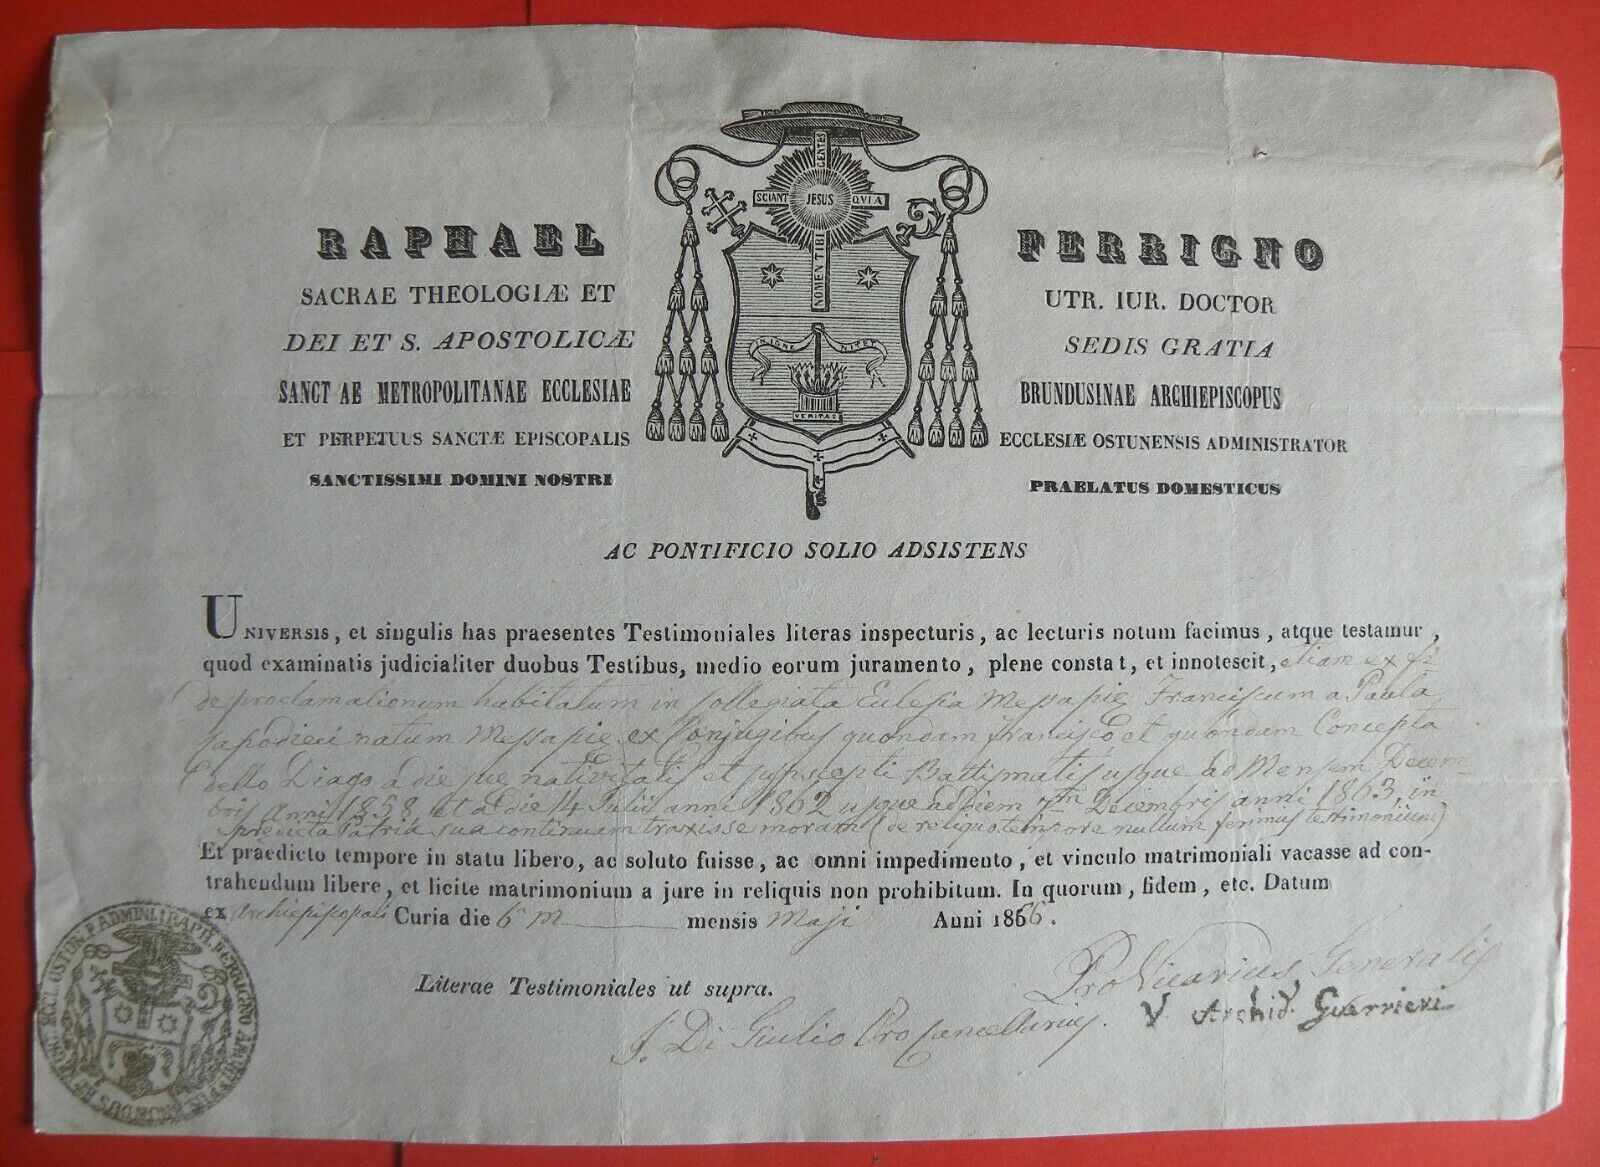 RAPHAEL FERRIGNO
SACRAE THEOLOGIÆ ET UTR. IUR. DOCTOR
DEI ET S. APOSTOLICÆ SEDIS GRATIA
SANCT AE METROPOLITANAE ECCLESIAE BRUNDUSINAE ARCHIEPISCOPUS
ET PERPETUUS SANCTÆ EPISCOPALIS ECCLESIÆ OSTUNENSIS ADMINISTRATOR
SANCTISSIMI DOMINI NOSTRI PRAELATUS DOMESTICUS
SCIANT GENTES QVIA NOMEN TIBI JESUS
VERITAS
AC PONTIFICIO SOLIO ADSISTENS
UNIVERSIS, et singulis has praesentes Testimoniales literas inspecturis, ac lecturis notum facimus, atque testamur,
quod examinatis judicialiter duobus Testibus, medio eorum juramento, plene constat, et innotescit, etiam ex fi
de proclamationum habitatum in Collegiata Eclesia Messapie Franciscum a Paula
natum Messapie ex Conjugibus quondam Francisco et quondam Concepta
dello Diago a die sue nativitatis et suscepti Battismatis usque ad Mensem Decem-
bris anni 1858 et a die 14 Julii anni 1862 usque ad diem Decembris anni 1863, in
predicta Patria sua continuam traxisse moram (de reliquo tempore nullum ferimus testimonium)
Et praedicto tempore in statu libero, ac soluto fuisse, ac omni impedimento, et vinculo matrimoniali vacasse ad con-
trahendum libere, et licite matrimonium a jure in reliquis non prohibitum. In quorum, fidem, etc. Datum
ex Archiepiscopali Curia die 6a M mensis Maji Anni 1866.
Pro Vicarius Generalis
Literae Testimoniales ut supra.
V. Archid. Guerrieri
J. Di Giulio Pro Cancellarius.
RAPH. FERRIGNO